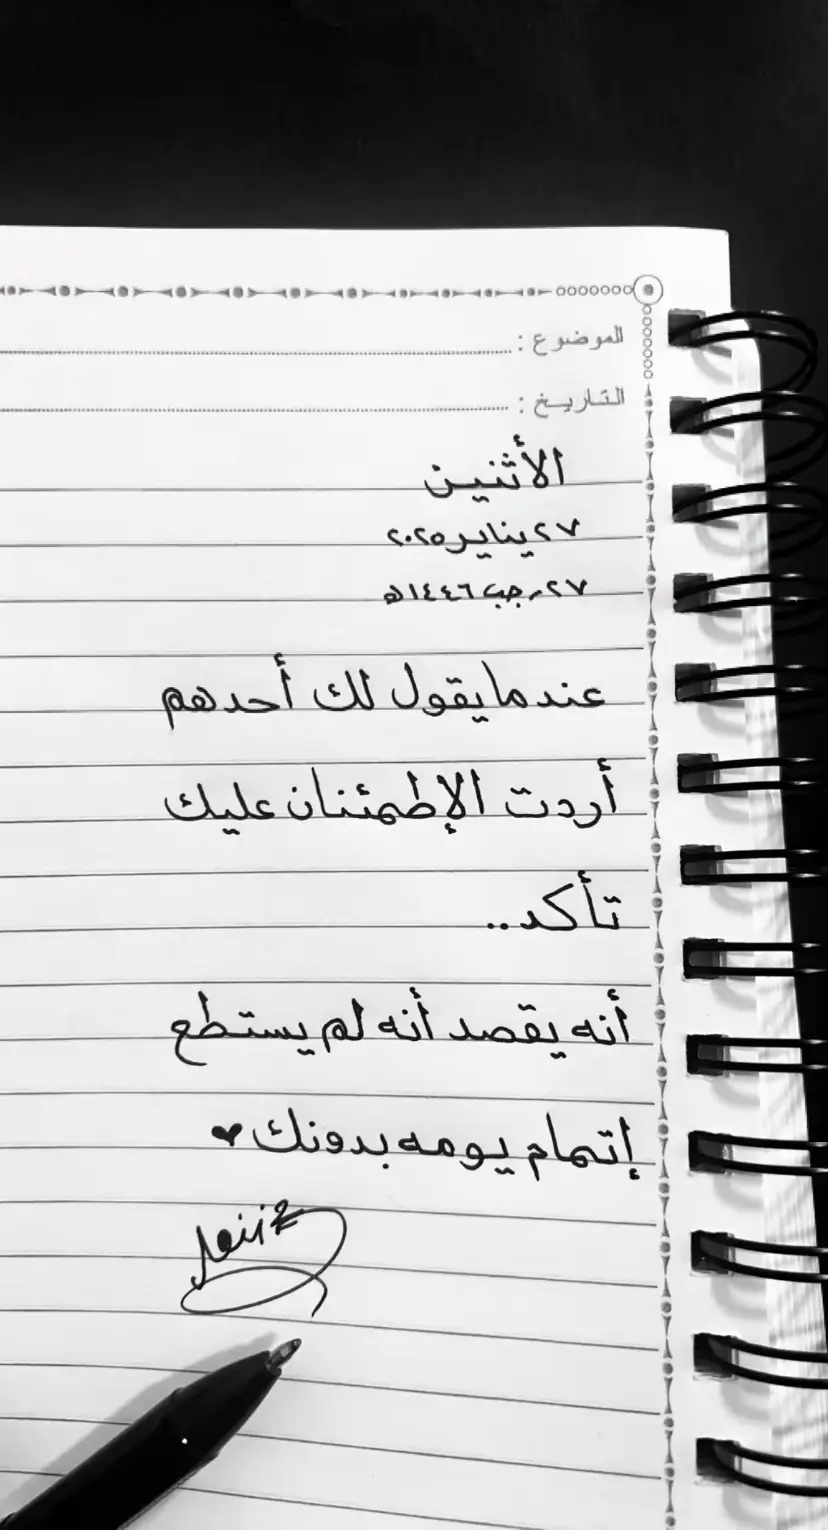 الموضوع :
التاريخ :
الأثنين
٢٧ يناير ٢٠٢٥
٢٧ رجب ١٤٤٦ه
عندما يقول لك أحدهم
أردت الإطمئنان عليك
تأكد..
أنه يقصد أنه لم يستطع
إتمام يومه بدونك ♥